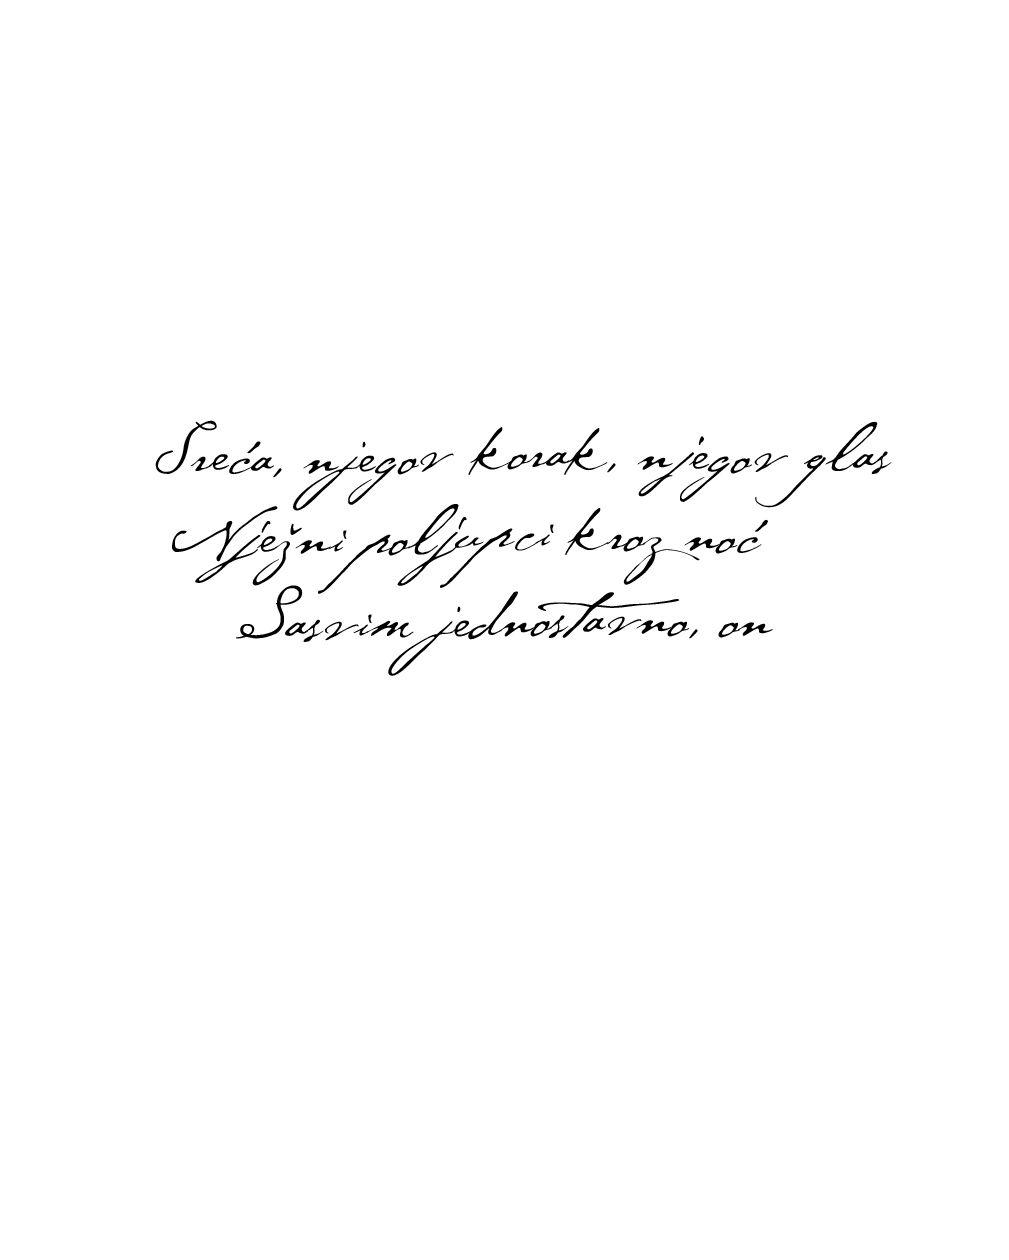 Sreća, njegov korak, njegov glas
Nježni poljupci kroz noć
Sasvim jednostavno, on